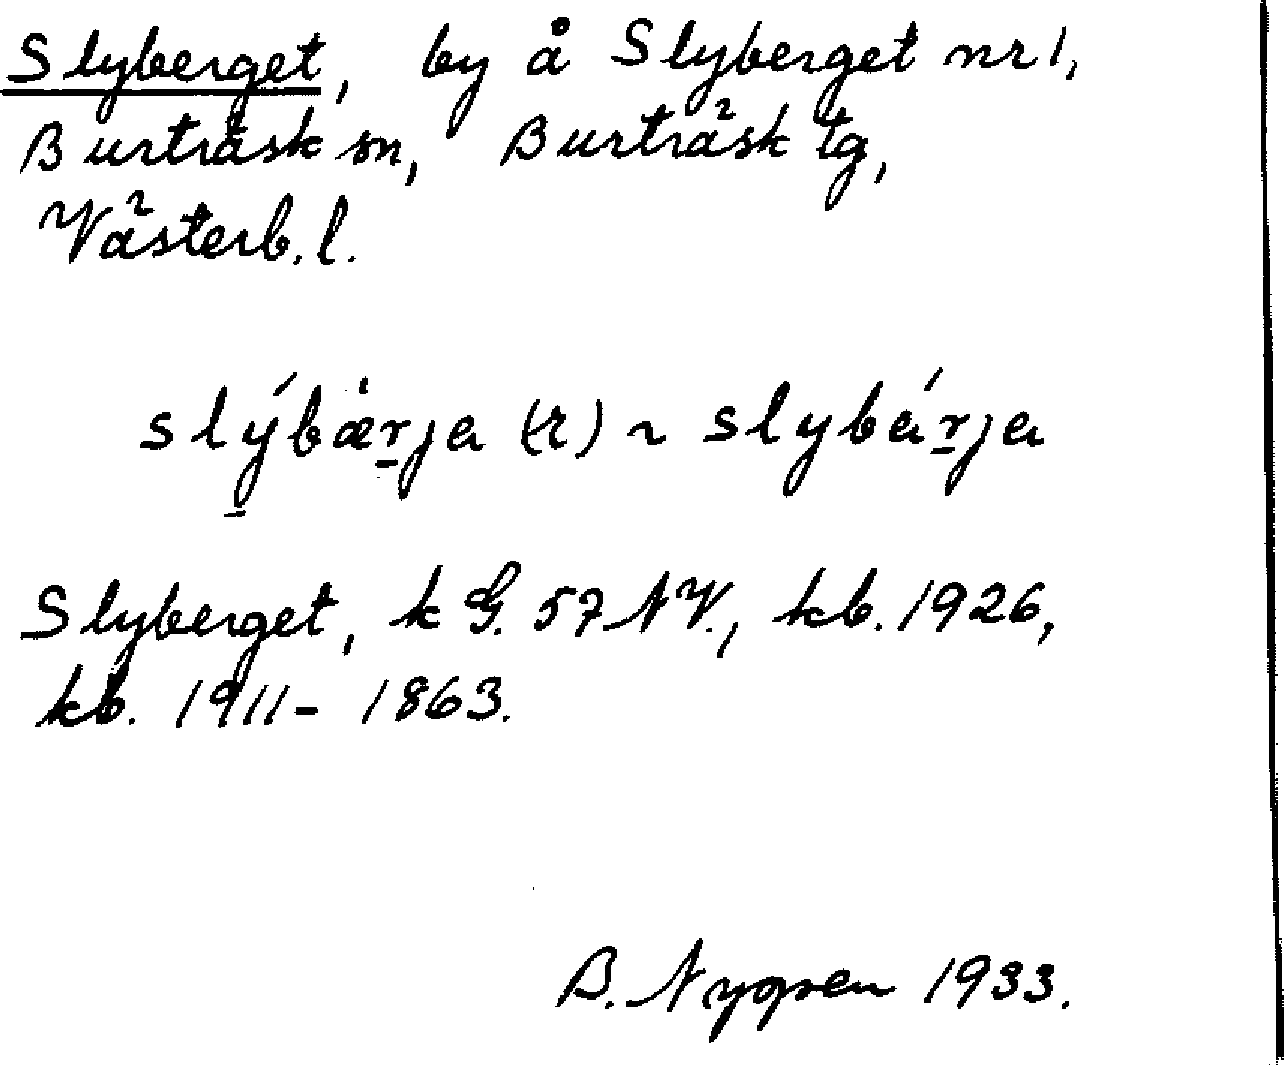 Slyberget, by å Slyberget nr 1,
Burträsk sn, Burträsk tg,
Västerb. l.
slýbærja (-r) ~ slybárja
Slyberget, k G. 57 NV., kb. 1926,
kb. 1911- 1863.
B. Nygren 1933.